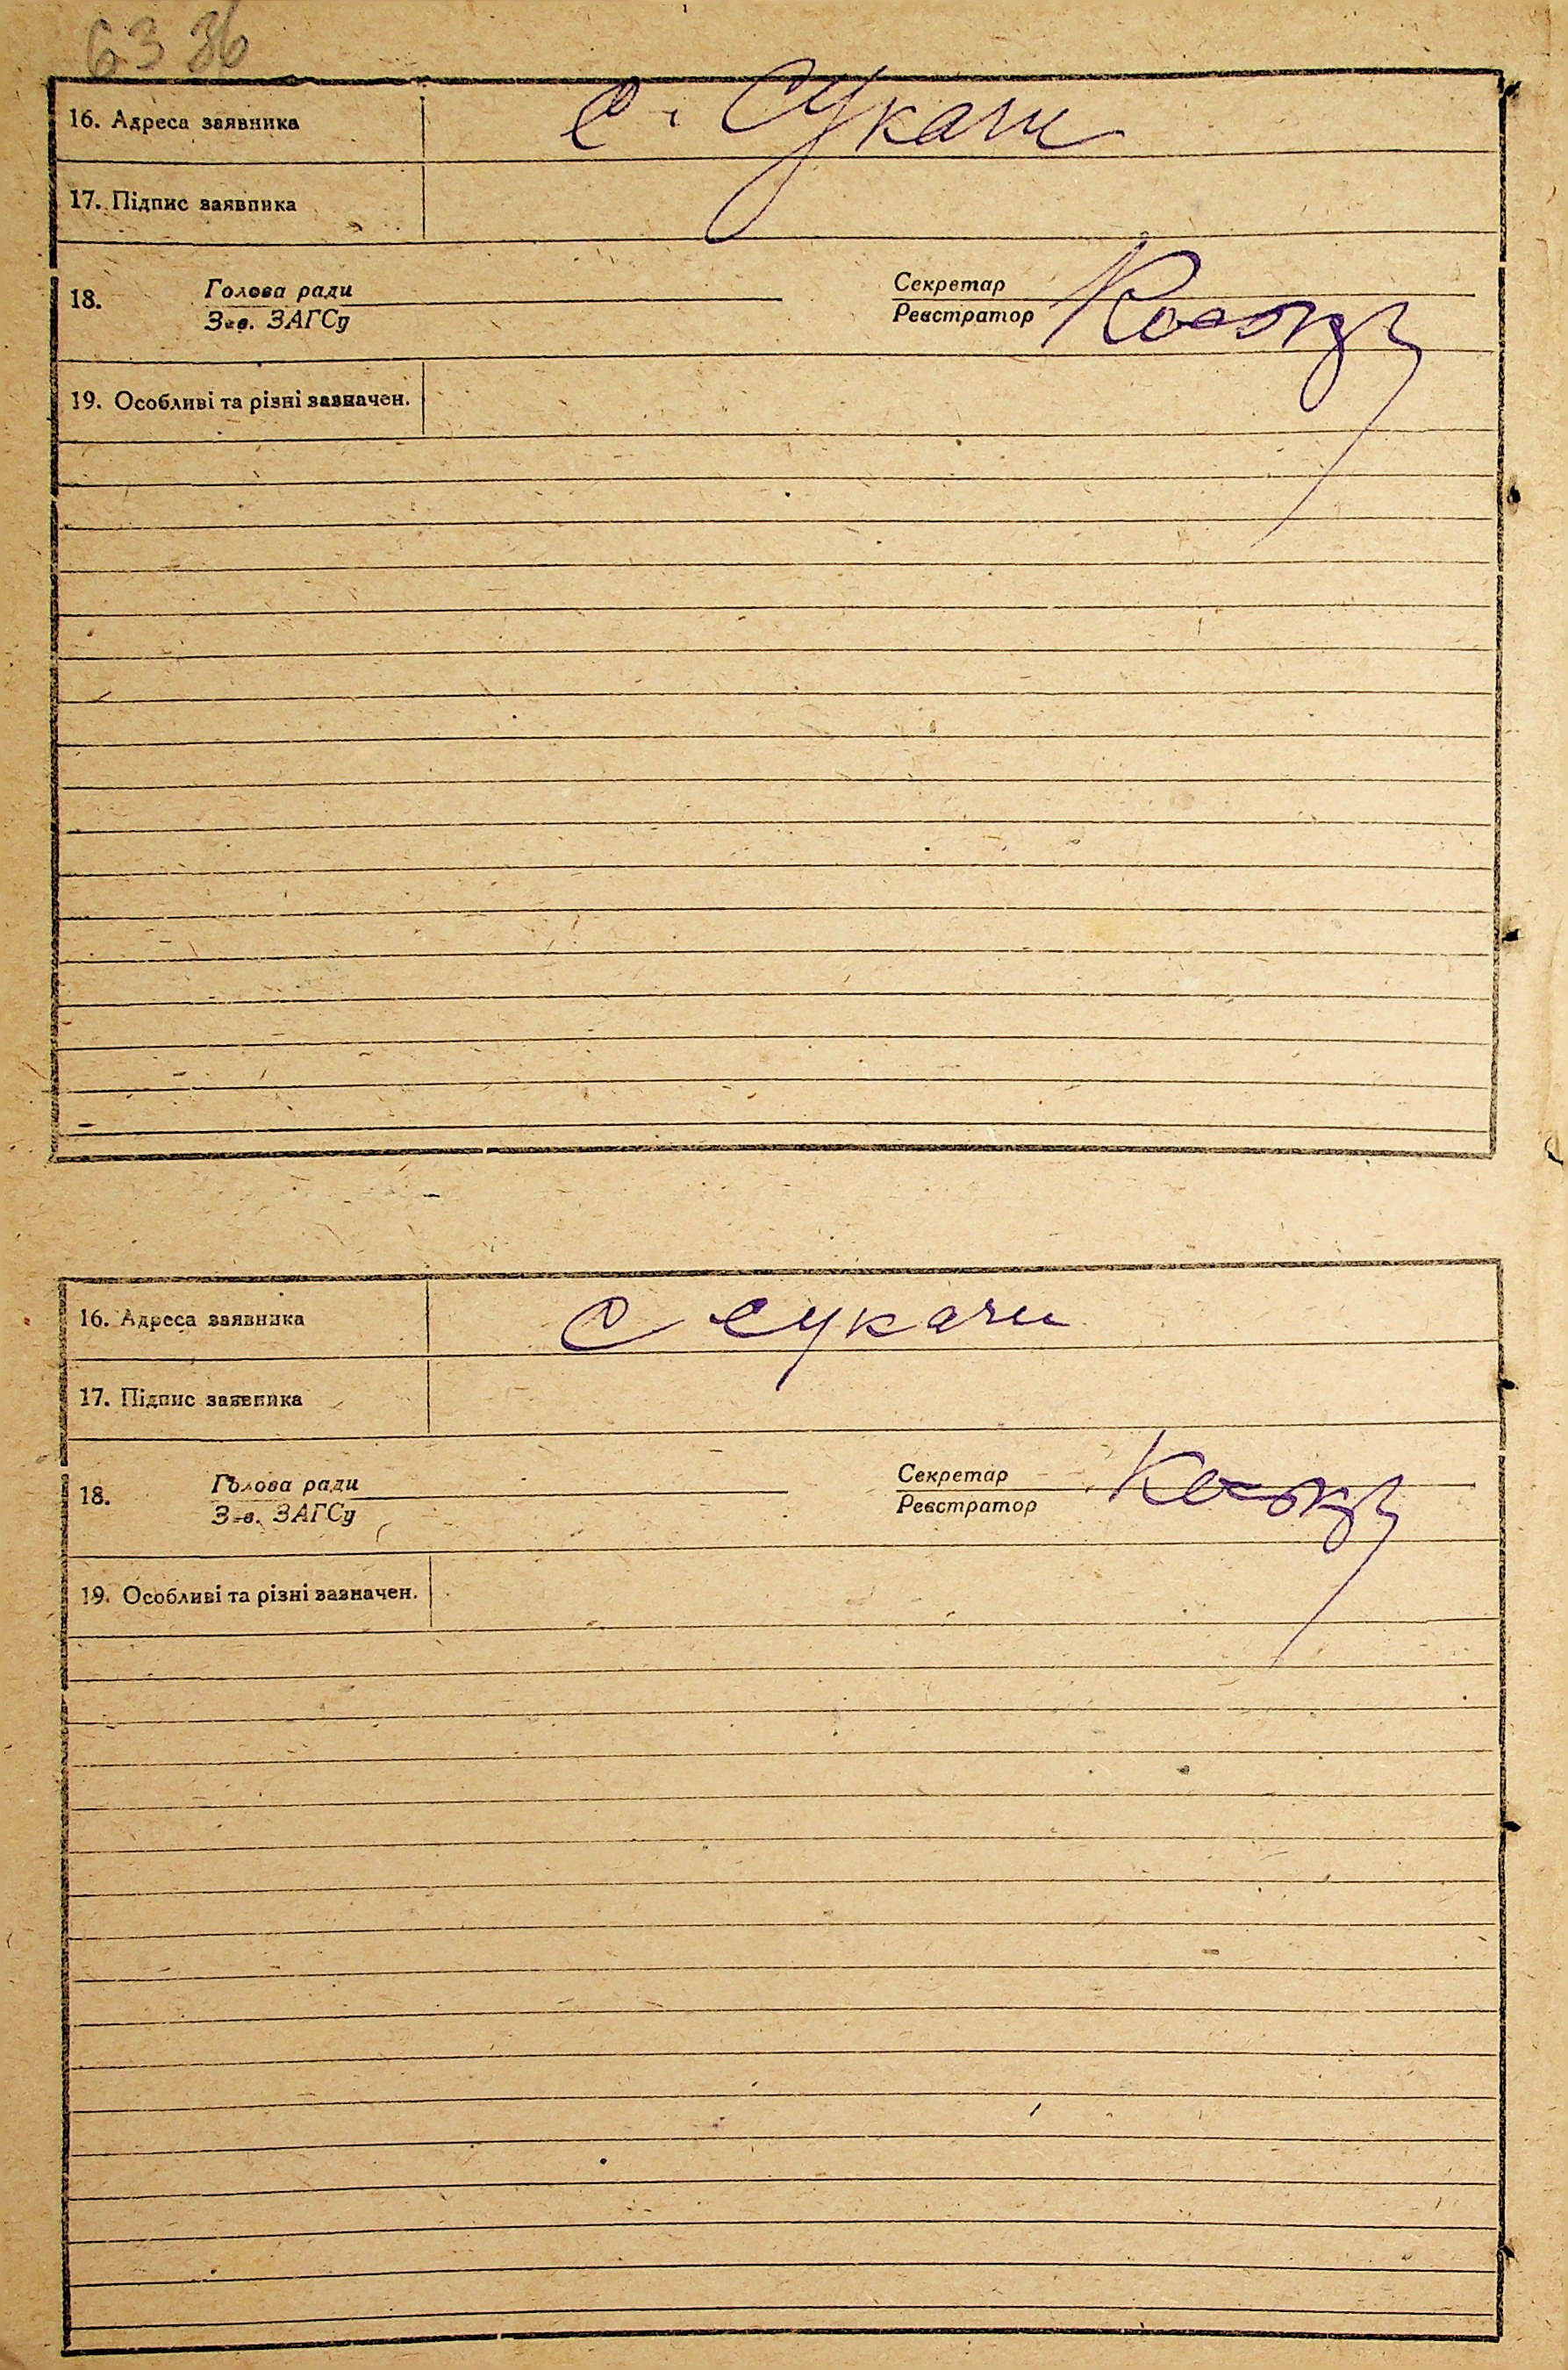 63 36
16. Адреса заявника с. Сукачи
17. Підпис заявника
18. Голова ради Секретар
Зав. ЗАГСу Реєстратор
19. Особливі та різні зазначен.
16. Адреса заявника с сукачи
17. Підпис заявника
18. Голова ради Секретар
Зав. ЗАГСу Реєстратор
19. Особливі та різні зазначен.